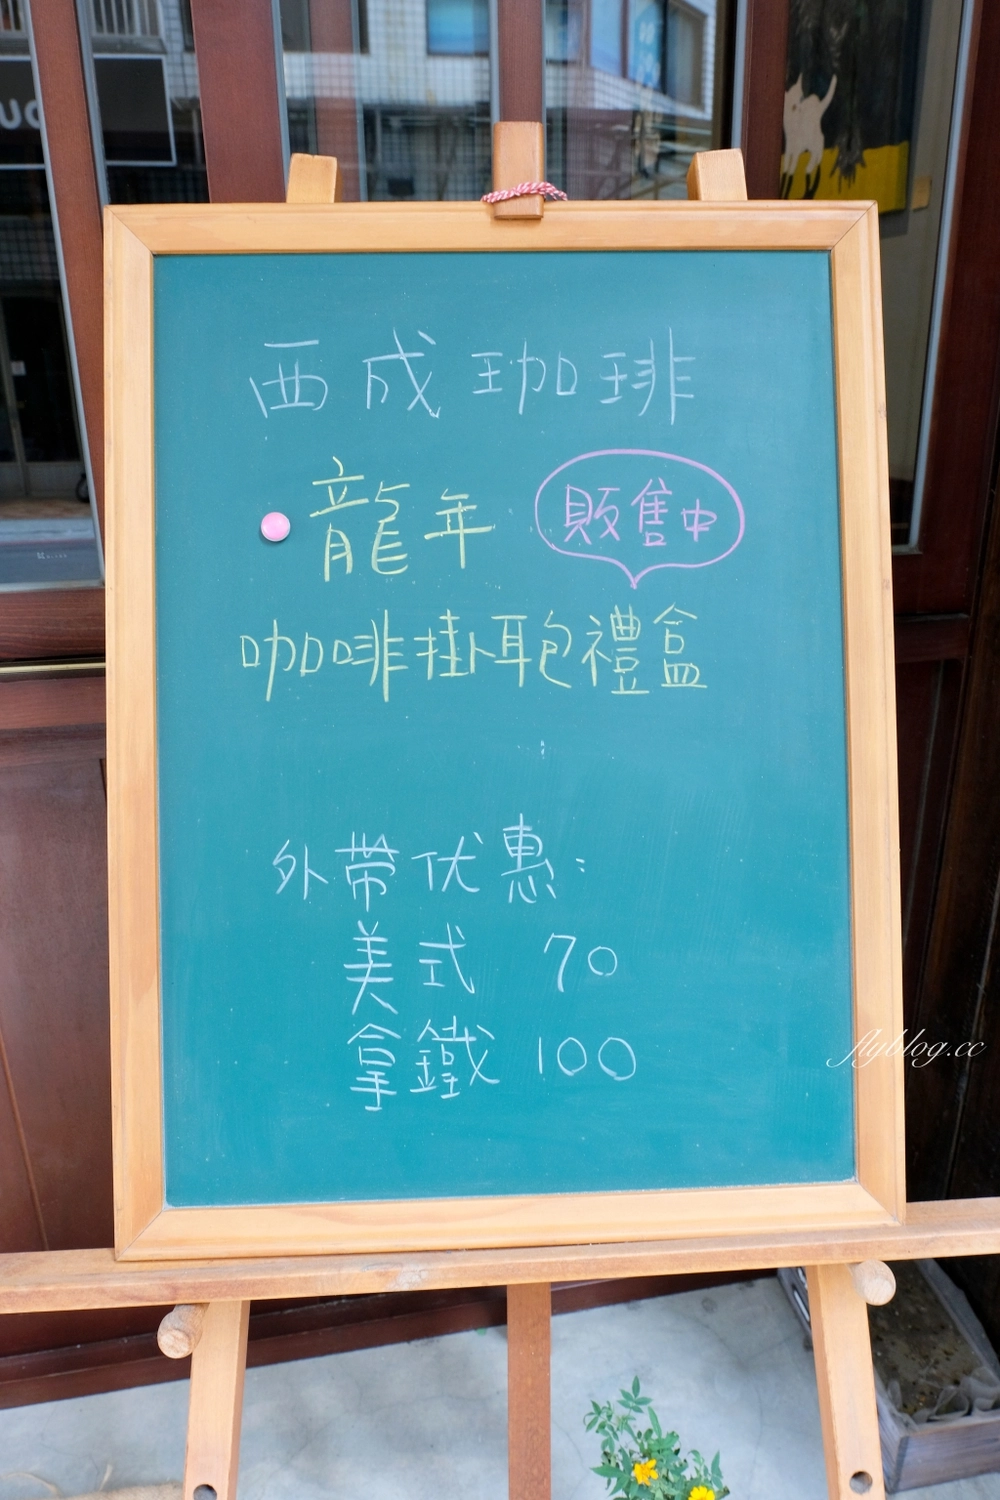 西成珈琲
龍年 販售中
咖啡掛耳包禮盒
外帶优惠:
美式 70
拿鐵 100
flyblog.cc